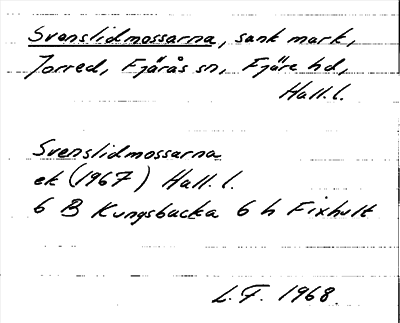 Svenslidmossarna, sank mark,
Torred, Fjärås sn, Fjäre hd,
Hall. l.
Svenslidmossarna
ek (1967) Hall. l.
6 B Kungsbacka 6 h Fixhult
L. F. 1968.